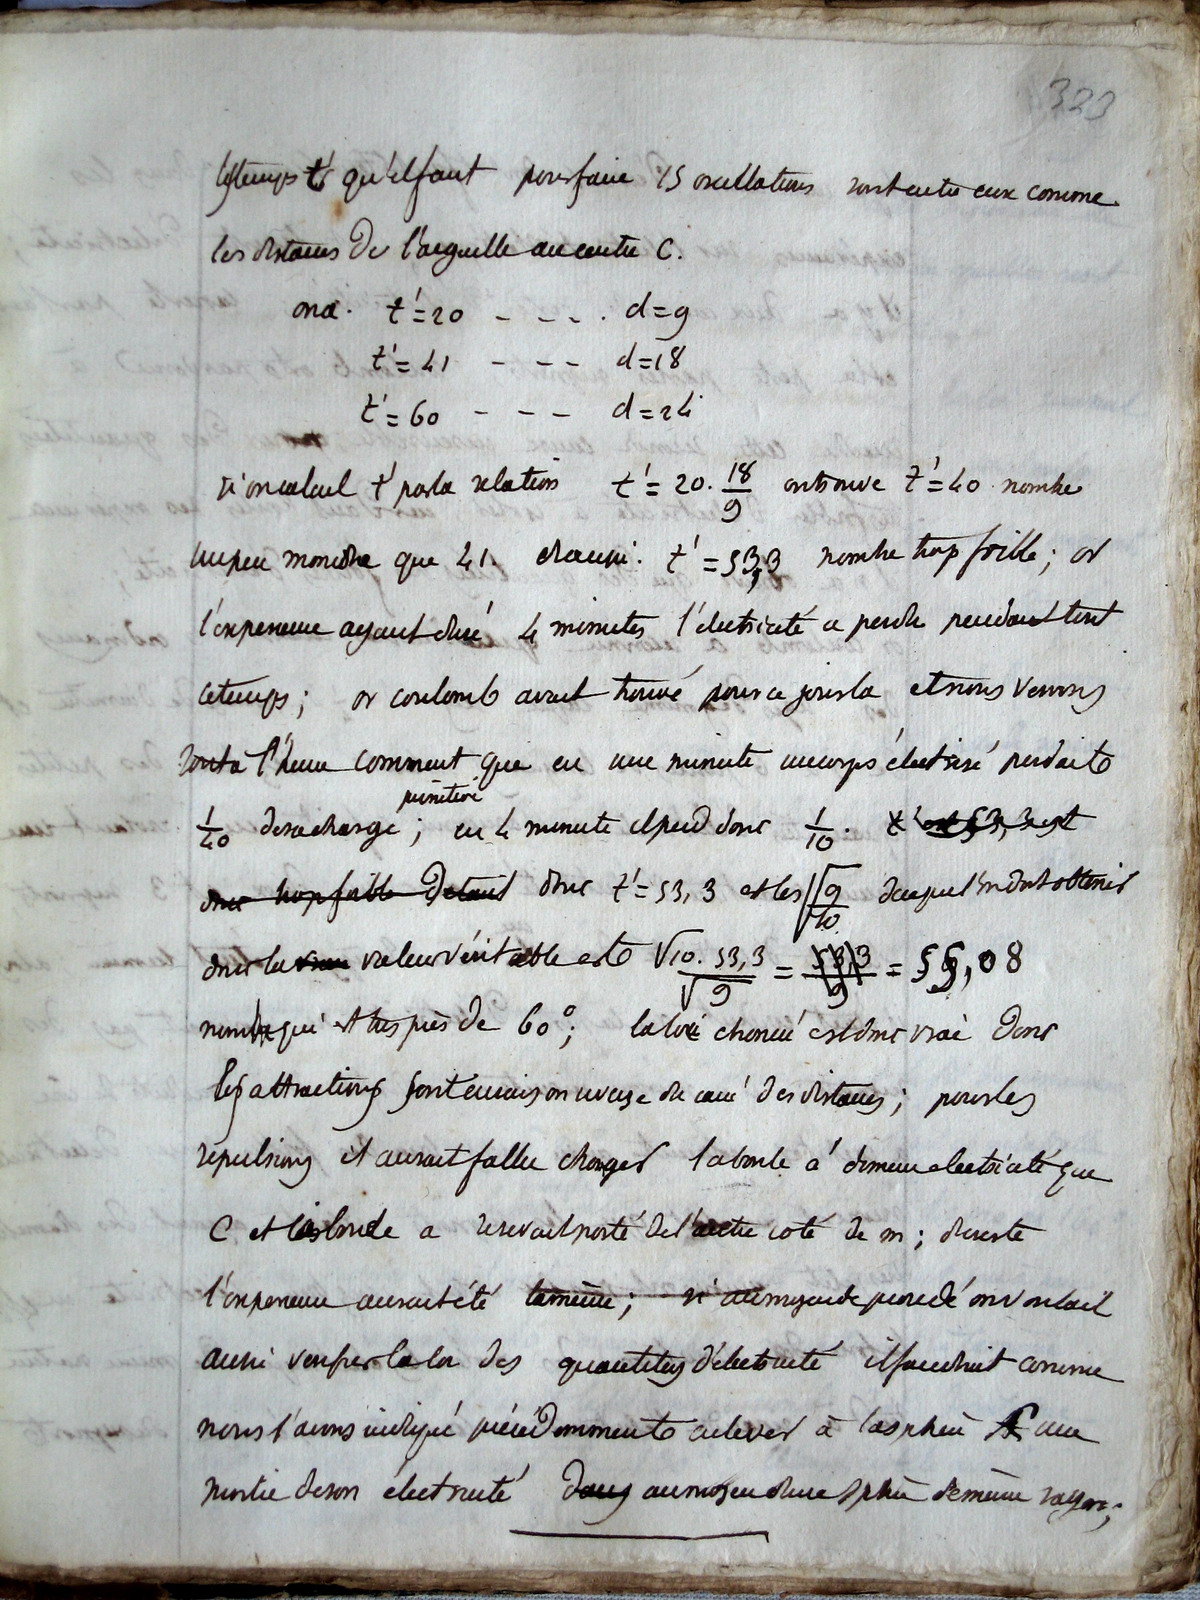 323
les temps t' qu'il faut pour faire 15 oscillations sont entre eux comme
les distances de l'aiguille au centre C.
on a. t'=20 - - - . d=9
t'=41 - - - d=18
t'=60 - - - d=24
si on calcul t' par la relation t'=20. 18/9 on trouve t'=40 nombre
un peu moindre que 41. et aussi. t'=53,3 nombre trop foible; or
l'experience ayant duré 4 minutes l'électricité a perdu pendant tout
ce temps; or coulomb avait trouvé pour ce jour la et nous verrons
tout a l'heure comment que en une minute un corps électrisé perdait
primitive
1/40 de sa charge; en 4 minute il perd donc 1/10. t' est 53,3 est
donc trop foible detail donc t'=53,3 est les √9/10 de ce que l'on doit obtenir
donc la vrai valeur véritable est √10. 53,3/√9 = 53,3/9 = 55,08
nombre qui est très près de 60°; la loi énoncé est donc vrai donc
les attractions sont en raison inverse du carré des distances; pour les
repulsions il aurait fallu charger la boule a d'même electricité que
C et la boule a se serait porté de l'autre coté de m; du reste
l'experience aurait été la même; si au moyen de ce procédé on voulait
aussi verifier la loi des quantités d'électricité il faudrait comme
nous l'avons indiqué précédemment enlever à la sphère une
partie de son électricité dans au moyen d'une sphère de même rayon;